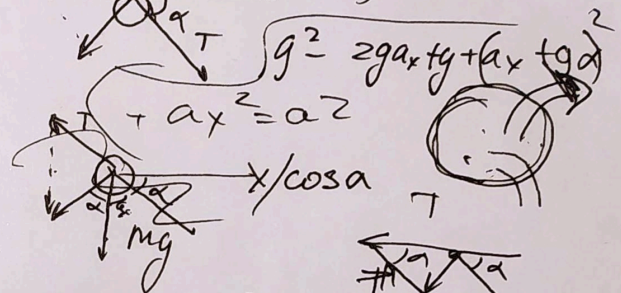 α
T
g² - 2ga_x + g + (a_x + gα)²
+ a_x² = a2
T
x/cosa
α
α
mg
T
a
α